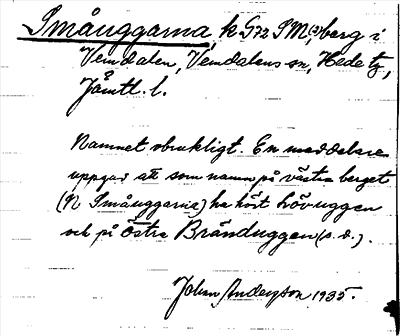 Småuggarna, k G72 SM(2) berg i
Vemdalen, Vemdalens sn, Hede tg,
Jämtl. l.
Namnet obrukligt. En meddelare
uppgav att som namn på västra berget
(N Småuggarna) ha hört Hövuggen
och på Östra Bränduggen (s. d.).
Johan Anderson 1935.